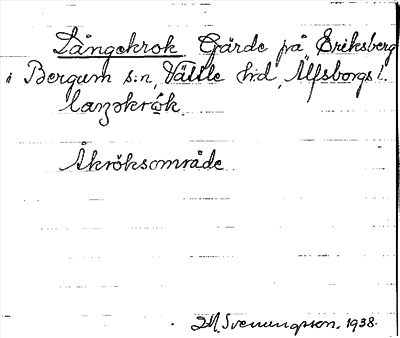 Långekrok Gärde på Eriksberg
i Bergum s:n, Vättle hd, Älfsborgs l.
Åkröksområde
M. Svenungsson. 1938.